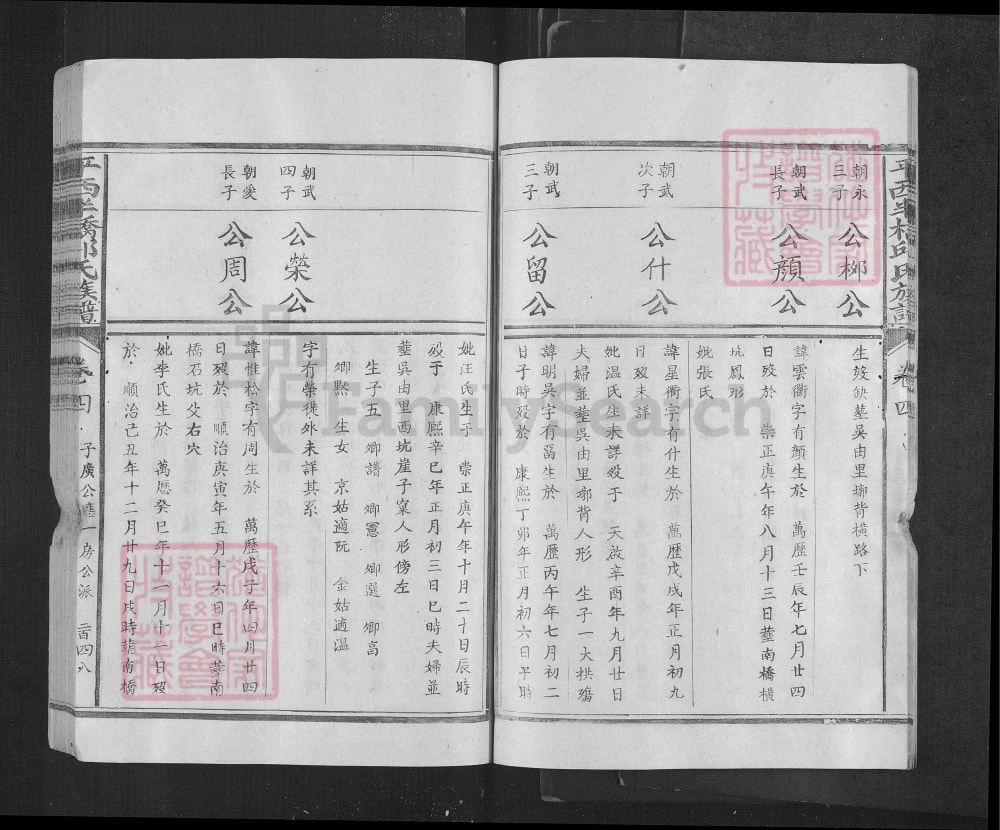 平西半橋邱氏族譜
卷四
朝永
三子
公柳公
朝武
長子
公顏公
朝武
次子
公什公
朝武
三子
公留公
生歿缺葬吳由里墩背橫路下
諱雲衢字有顏生於 萬歷壬辰年七月廿四
日歿於 崇正庚午年八月十三日葬南橋橫
坑鳳形
妣張氏
諱星衢字有什生於 萬歷戊戌年正月初九
日歿未詳
妣溫氏生未詳歿于 天啟辛酉年九月廿日
夫婦並葬吳由里墩背人形 生子一大拱殤
諱明吳字有畱生於 萬歷丙午年七月初二
日子時歿於 康熙丁卯年正月初六日子時
朝武
四子
公榮公
朝愛
長子
公周公
妣汪氏生于 崇正庚午年十月二十日辰時
歿于 康熙辛巳年正月初三日巳時夫婦並
葬吳由里西坑崖子窠人形傍左
生子五 卿譜 卿憲 卿選 卿高
卿熙 生女 京姑適阮 金姑適溫
字有榮徙外未詳其系
諱惟松字有周生於 萬歷戊子年四月廿四
日歿於 順治庚寅年五月十六日巳時葬南
橋石坑爻右穴
妣李氏生於 萬歷癸巳年十一月十一日歿
於 順治己丑年十二月廿九日戌時葬南橋
平西半橋邱氏族譜
卷四
子廣公應一房公派
二百四八
FamilySearch